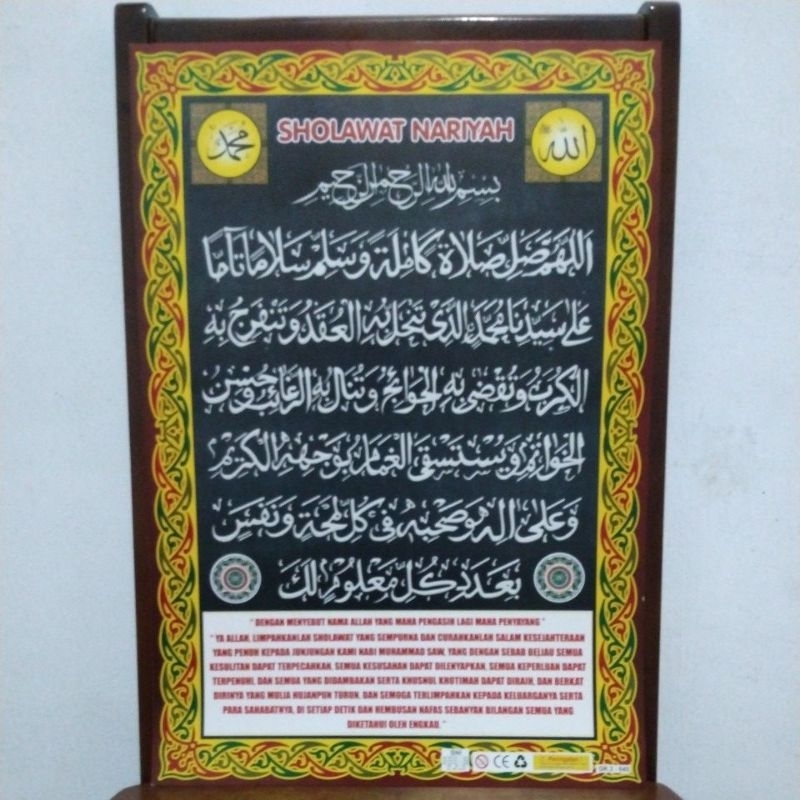 محمد
SHOLAWAT NARIYAH
الله
بسم الله الرحمن الرحيم
اللهم صل صلاة كاملة وسلم سلاما تاما
على سيدنا محمد الذى تنحل به العقد وتنفرج به
الكرب وتقضى به الحوائج وتنال به الرغائب وحسن
الخواتم ويستسقى الغمام بوجهه الكريم
وعلى اله وصحبه فى كل لمحة ونفس
بعدد كل معلوم لك
" DENGAN MENYEBUT NAMA ALLAH YANG MAHA PENGASIH LAGI MAHA PENYAYANG "
" YA ALLAH, LIMPAHKANLAH SHOLAWAT YANG SEMPURNA DAN CURAHKANLAH SALAM KESEJAHTERAAN
YANG PENUH KEPADA JUNJUNGAN KAMI NABI MUHAMMAD SAW, YANG DENGAN SEBAB BELIAU SEMUA
KESULITAN DAPAT TERPECAHKAN, SEMUA KESUSAHAN DAPAT DILENYAPKAN, SEMUA KEPERLUAN DAPAT
TERPENUHI, DAN SEMUA YANG DIDAMBAKAN SERTA KHUSNUL KHOTIMAH DAPAT DIRAIH, DAN BERKAT
DIRINYA YANG MULIA HUJANPUN TURUN, DAN SEMOGA TERLIMPAHKAN KEPADA KELUARGANYA SERTA
PARA SAHABATNYA, DI SETIAP DETIK DAN HEMBUSAN NAFAS SEBANYAK BILANGAN SEMUA YANG
DIKETAHUI OLEH ENGKAU. "
CE